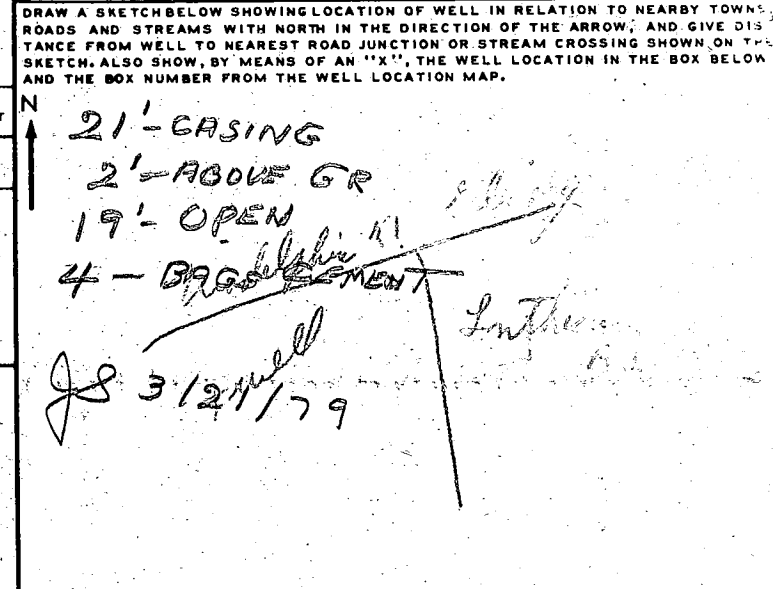 DRAW A SKETCH BELOW SHOWING LOCATION OF WELL IN RELATION TO NEARBY TOWNS,
ROADS AND STREAMS WITH NORTH IN THE DIRECTION OF THE ARROW, AND GIVE DIS
TANCE FROM WELL TO NEAREST ROAD JUNCTION OR STREAM CROSSING SHOWN ON THE
SKETCH. ALSO SHOW, BY MEANS OF AN "X", THE WELL LOCATION IN THE BOX BELOW
AND THE BOX NUMBER FROM THE WELL LOCATION MAP.
N
21'-CASING
2'-ABOVE GR
19'- OPEN
4 - BAGS CEMENT
well
JS 3/21/79